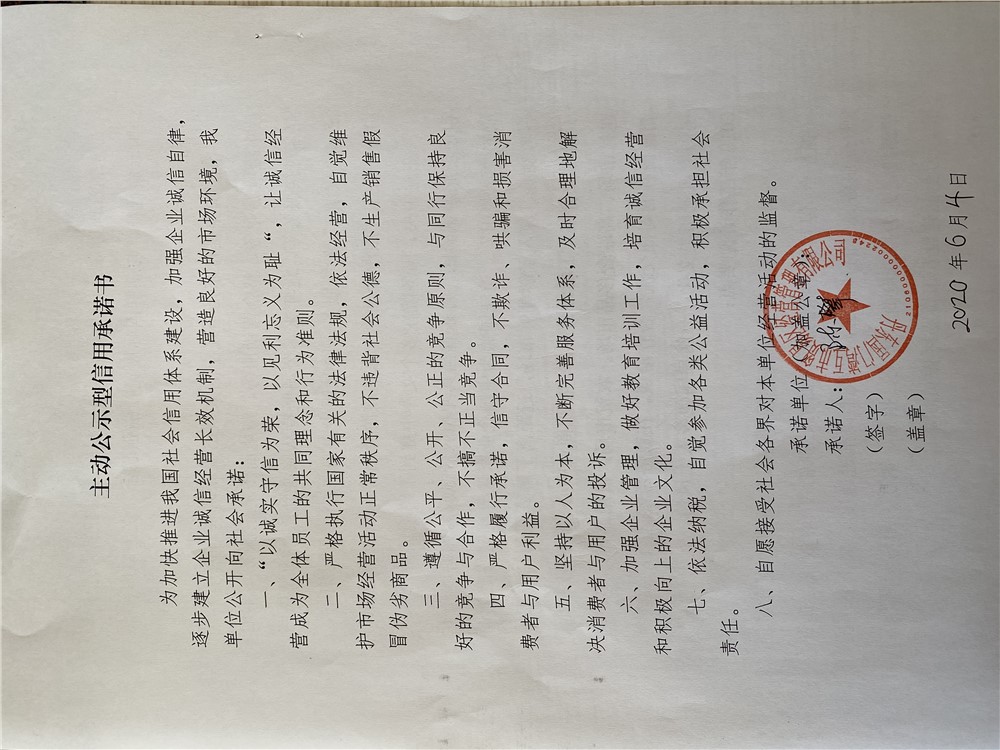 主动公示型信用承诺书
为加快推进我国社会信用体系建设，加强企业诚信自律，
逐步建立企业诚信经营长效机制，营造良好的市场环境，我
单位公开向社会承诺：
一、“以诚实守信为荣，以见利忘义为耻“，让诚信经
营成为全体员工的共同理念和行为准则。
二、严格执行国家有关的法律法规，依法经营，自觉维
护市场经营活动正常秩序，不违背社会公德，不生产销售假
冒伪劣商品。
三、遵循公平、公开、公正的竞争原则，与同行保持良
好的竞争与合作，不搞不正当竞争。
四、严格履行承诺，信守合同，不欺诈、哄骗和损害消
费者与用户利益。
五、坚持以人为本，不断完善服务体系，及时合理地解
决消费者与用户的投诉。
六、加强企业管理，做好教育培训工作，培育诚信经营
和积极向上的企业文化。
七、依法纳税，自觉参加各类公益活动，积极承担社会
责任。
八、自愿接受社会各界对本单位经营活动的监督。
承诺单位（加盖公章）：
承诺人：
（签字）
（盖章）
2020年6月4日